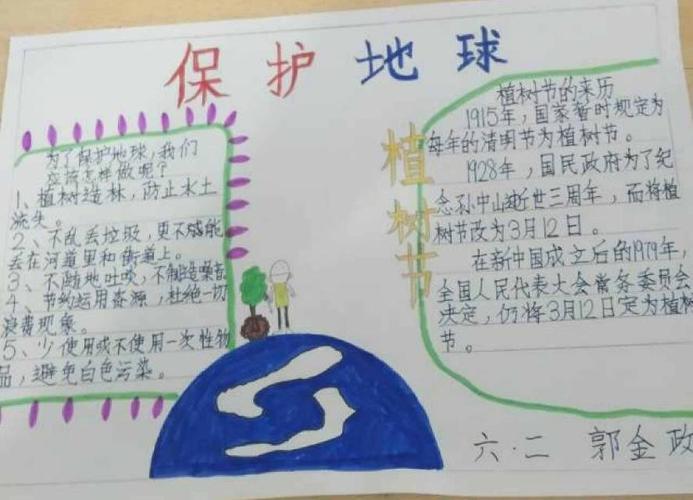 保护地球
为了保护地球，我们
应该怎样做呢？
1、植树造林，防止水土
流失。
2、不乱丢垃圾，更不能
丢在河道里和街道上。
3、不随地吐痰，不制造噪音
4、节约运用资源，杜绝一切
浪费现象。
5、少使用或不使用一次性物
品，避免白色污染。
植树节
植树节的来历
1915年，国家暂时规定为
每年的清明节为植树节。
1928年，国民政府为了纪
念孙中山逝世三周年，而将植
树节改为3月12日。
在新中国成立后的1979年，
全国人民代表大会常务委员会
决定，仍将3月12日定为植树
节。
六·二 郭金政